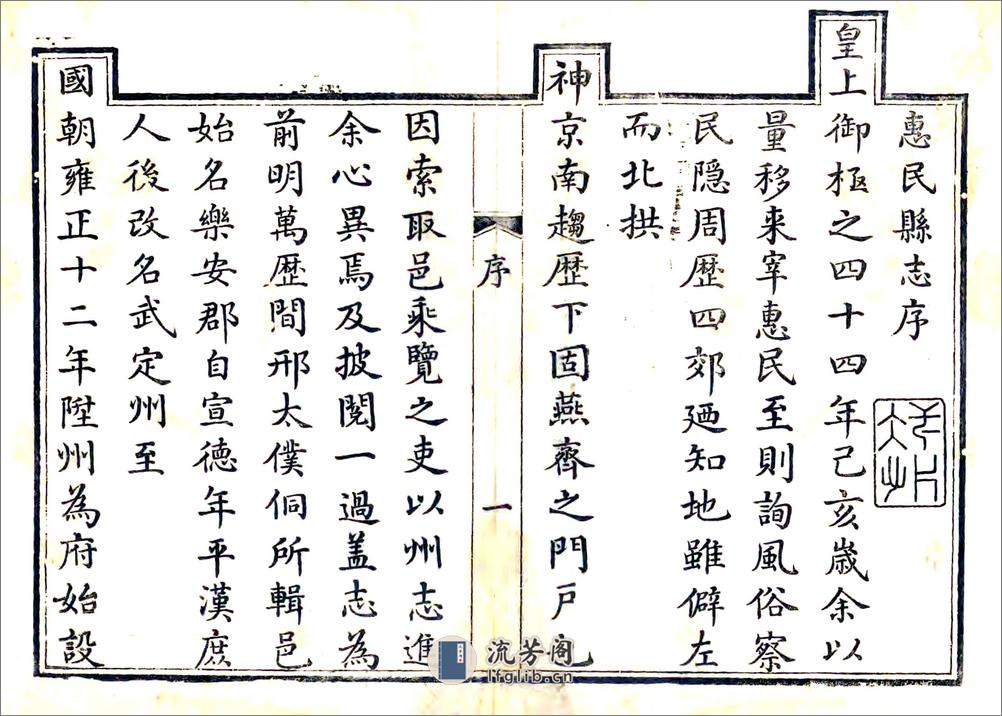 惠民縣志序
皇上御極之四十四年己亥歲余以
量移来宰惠民至則詢風俗察
民隱周歷四郊廼知地雖僻左
而北拱
神京南趨歷下固燕齊之門戶也
序
一
因索取邑乘覽之吏以州志進
余心異焉及披閱一過蓋志為
前明萬歷間邢太僕侗所輯邑
始名樂安郡自宣德年平漢庶
人後改名武定州至
國朝雍正十二年陞州為府始設
流芳阁
lfglib.cn